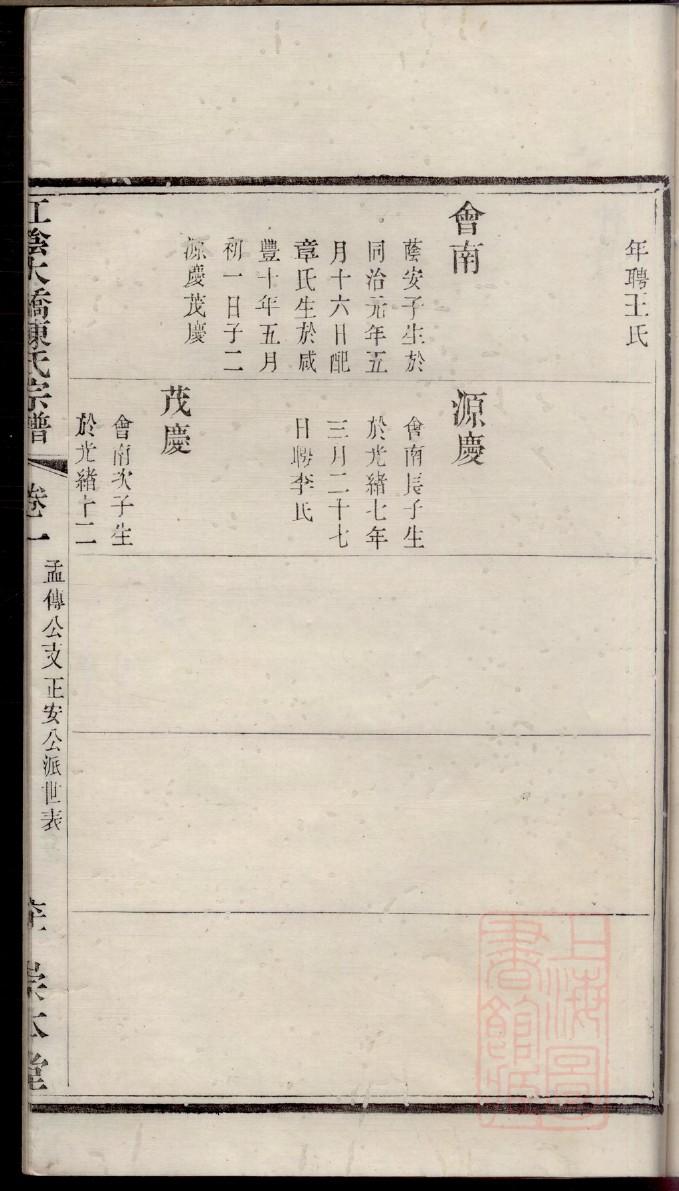 年聘王氏
會南
蔭安子生於
同治元年五
月十六日配
章氏生於咸
豐十年五月
初一日子二
源慶茂慶
源慶
會南長子生
於光緒七年
三月二十七
日聘李氏
茂慶
會南次子生
於光緒十二
江陰大橋陳氏宗譜
卷一
孟傳公支正安公派世表
宗本堂
上海圖書館藏